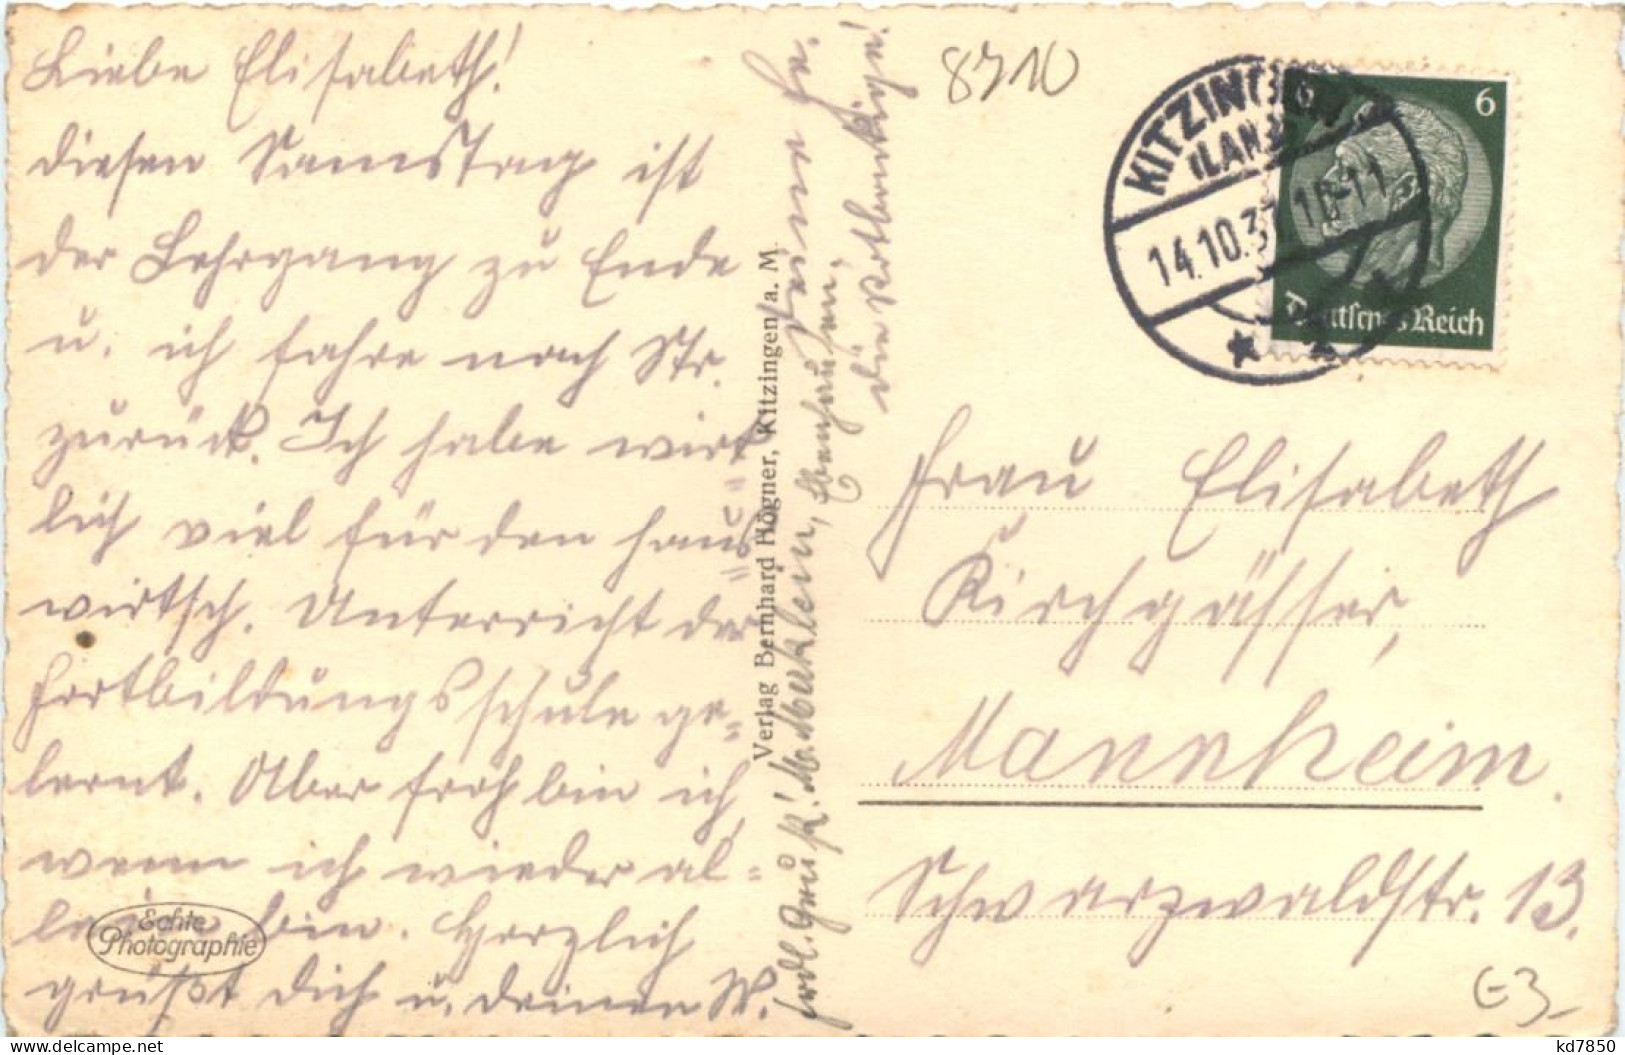 Liebe Elisabeth!
diesen Samstag ist
der Lehrgang zu Ende
u. ich fahre nach Str.
zurück. Ich habe wirk=
lich viel für den haus=
wirtsch. Unterricht der
Fortbildungsschule ge=
lernt. Aber froh bin ich,
wenn ich wieder al=
lein bin. Herzlich
grüßt Dich u. deinen W.
Deine
Verlag Bernhard Högner, Kitzingen a. M.
herzl. Gruß!
die
Echte
Photographie
8710
KITZINGEN
14.10.37 10-11
6
Deutsches Reich
Frau Elisabeth
Kirchgässer,
Mannheim.
Schwarzwaldstr. 13.
E3
kd7850